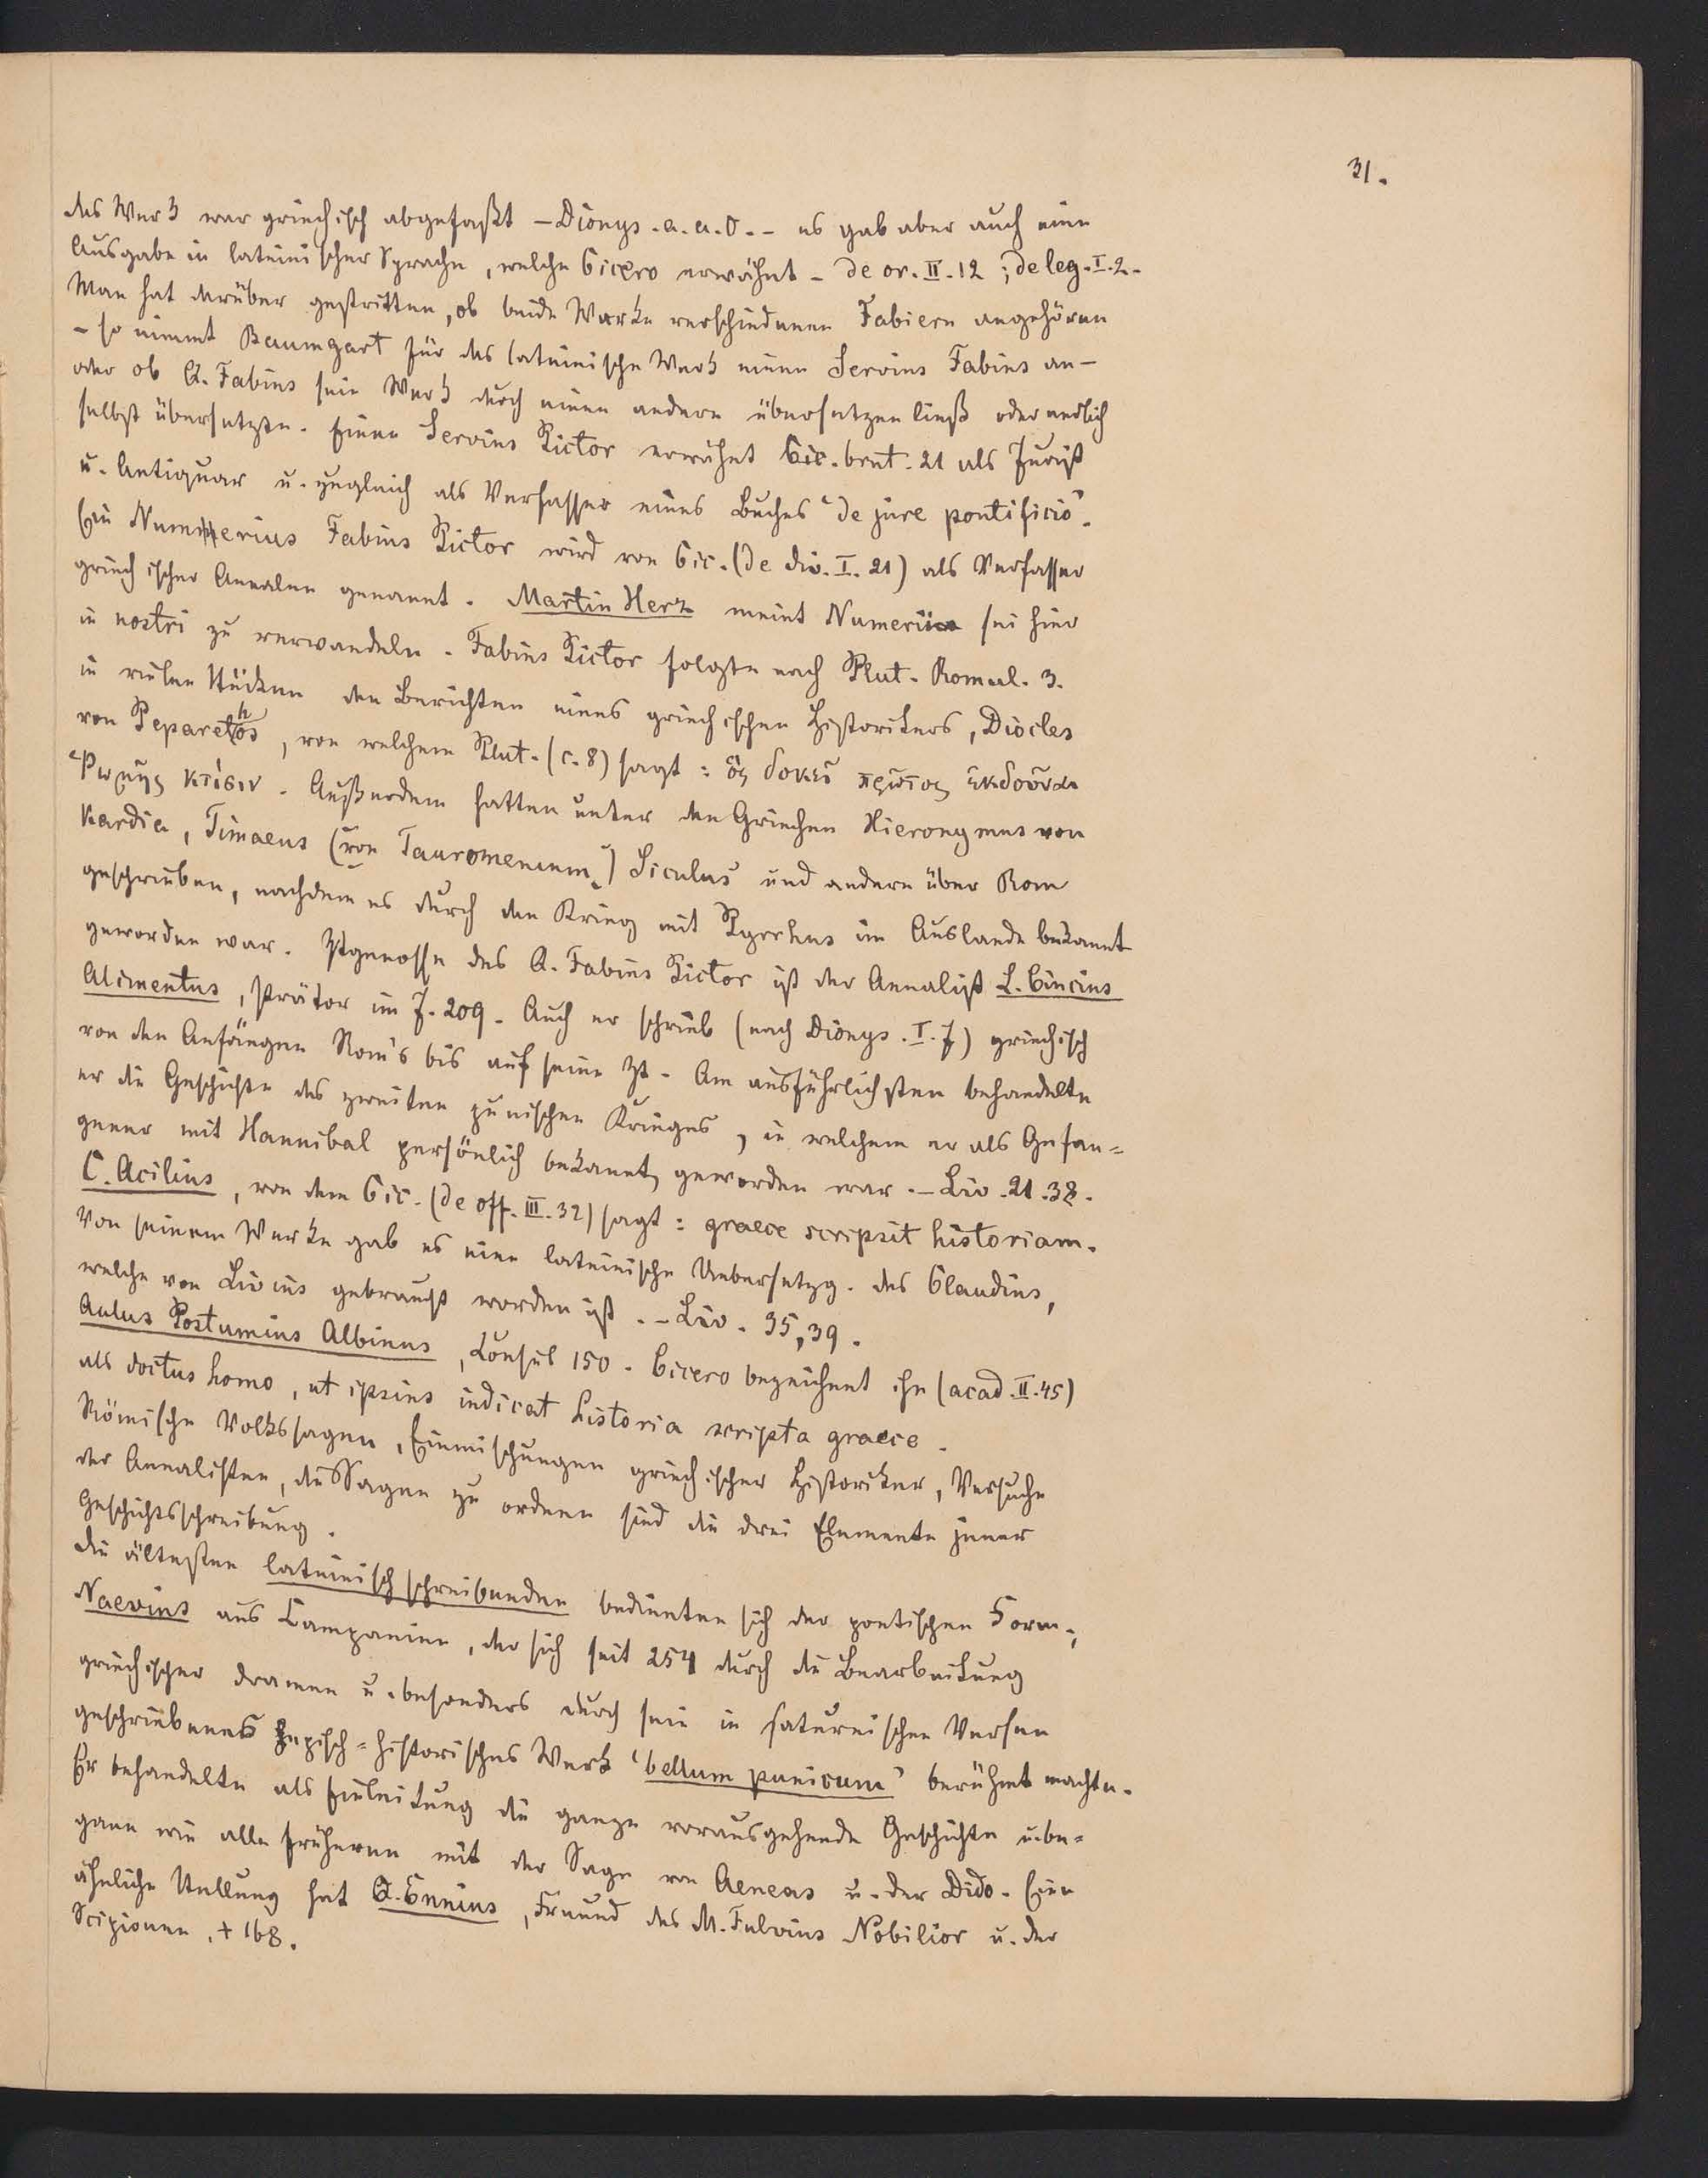 31.
das Werk war griechisch abgefaßt – Dionys. a. a. O. – es gab aber auch eine
Ausgabe in lateinischer Sprache, welche Cicero erwähnt – de or. II. 12; de leg. I. 2.
Man hat darüber gestritten, ob beide Werke verschiedenen Fabiern angehören
– so nimmt Baumgart für das lateinische Werk einen Servius Fabius an –
oder ob Q. Fabius sein Werk durch einen andern übersetzen ließ oder endlich
selbst übersetzte. Einen Servius Pictor erwähnt Cic. brut. 21 als Jurist
u. Antiquar u. zugleich als Verfasser eines Buches "de jure pontificio".
Ein Numerius Fabius Pictor wird von Cic. (de div. I. 21) als Verfasser
griechischer Annalen genannt. Martin Herz meint Numerius sei hier
in nostri zu verwandeln. Fabius Pictor folgte nach Plut. Romul. 3.
in vielen Stücken den Berichten eines griechischen Historikers, Diocles
von Peparethos, von welchem Plut. (c. 8) sagt: ὃς δοκεῖ πρῶτος ἐκδοῦναι
Ῥώμης κτίσιν. Außerdem hatten unter den Griechen Hieronymus von
Kardia, Timaeus (von Tauromenium) Siculus und andere über Rom
geschrieben, nachdem es durch den Krieg mit Pyrrhus im Auslande bekannt
geworden war. Ztgenosse des Q. Fabius Pictor ist der Annalist L. Cincius
Alimentus, Prätor im J. 209. Auch er schrieb (nach Dionys. I. 7) griechisch
von den Anfängen Rom's bis auf seine Zt. Am ausführlichsten behandelte
er die Geschichte des zweiten punischen Krieges, in welchem er als Gefan=
gener mit Hannibal persönlich bekannt geworden war. – Liv. 21. 38.
C. Acilius, von dem Cic. (de off. III. 32) sagt: graece scripsit historiam.
Von seinem Werke gab es eine lateinische Uebersetzg. des Claudius,
welche von Livius gebraucht worden ist. – Liv. 35, 39.
Aulus Postumius Albinus, Consul 150. Cicero bezeichnet ihn (acad. II. 45)
als doctus homo, ut ipsius indicat historia scripta graece.
Römische Volkssagen, Einmischungen griechischer Historiker, Versuche
der Annalisten, die Sagen zu ordnen sind die drei Elemente jener
Geschichtsschreibung.
Die ältesten lateinisch schreibenden bedienten sich der poetischen Form;
Naevius aus Campanien, der sich seit 254 durch die Bearbeitung
griechischer Dramen u. besonders durch sein in saturnischen Versen
geschriebenes episch=historisches Werk 'bellum punicum' berühmt machte.
Er behandelte als Einleitung die ganze vorausgehende Geschichte u. be=
gann wie alle früheren mit der Sage von Aeneas u. der Dido. Eine
ähnliche Stellung hat Q. Ennius, Freund des M. Fulvius Nobilior u. der
Scipionen, † 168.